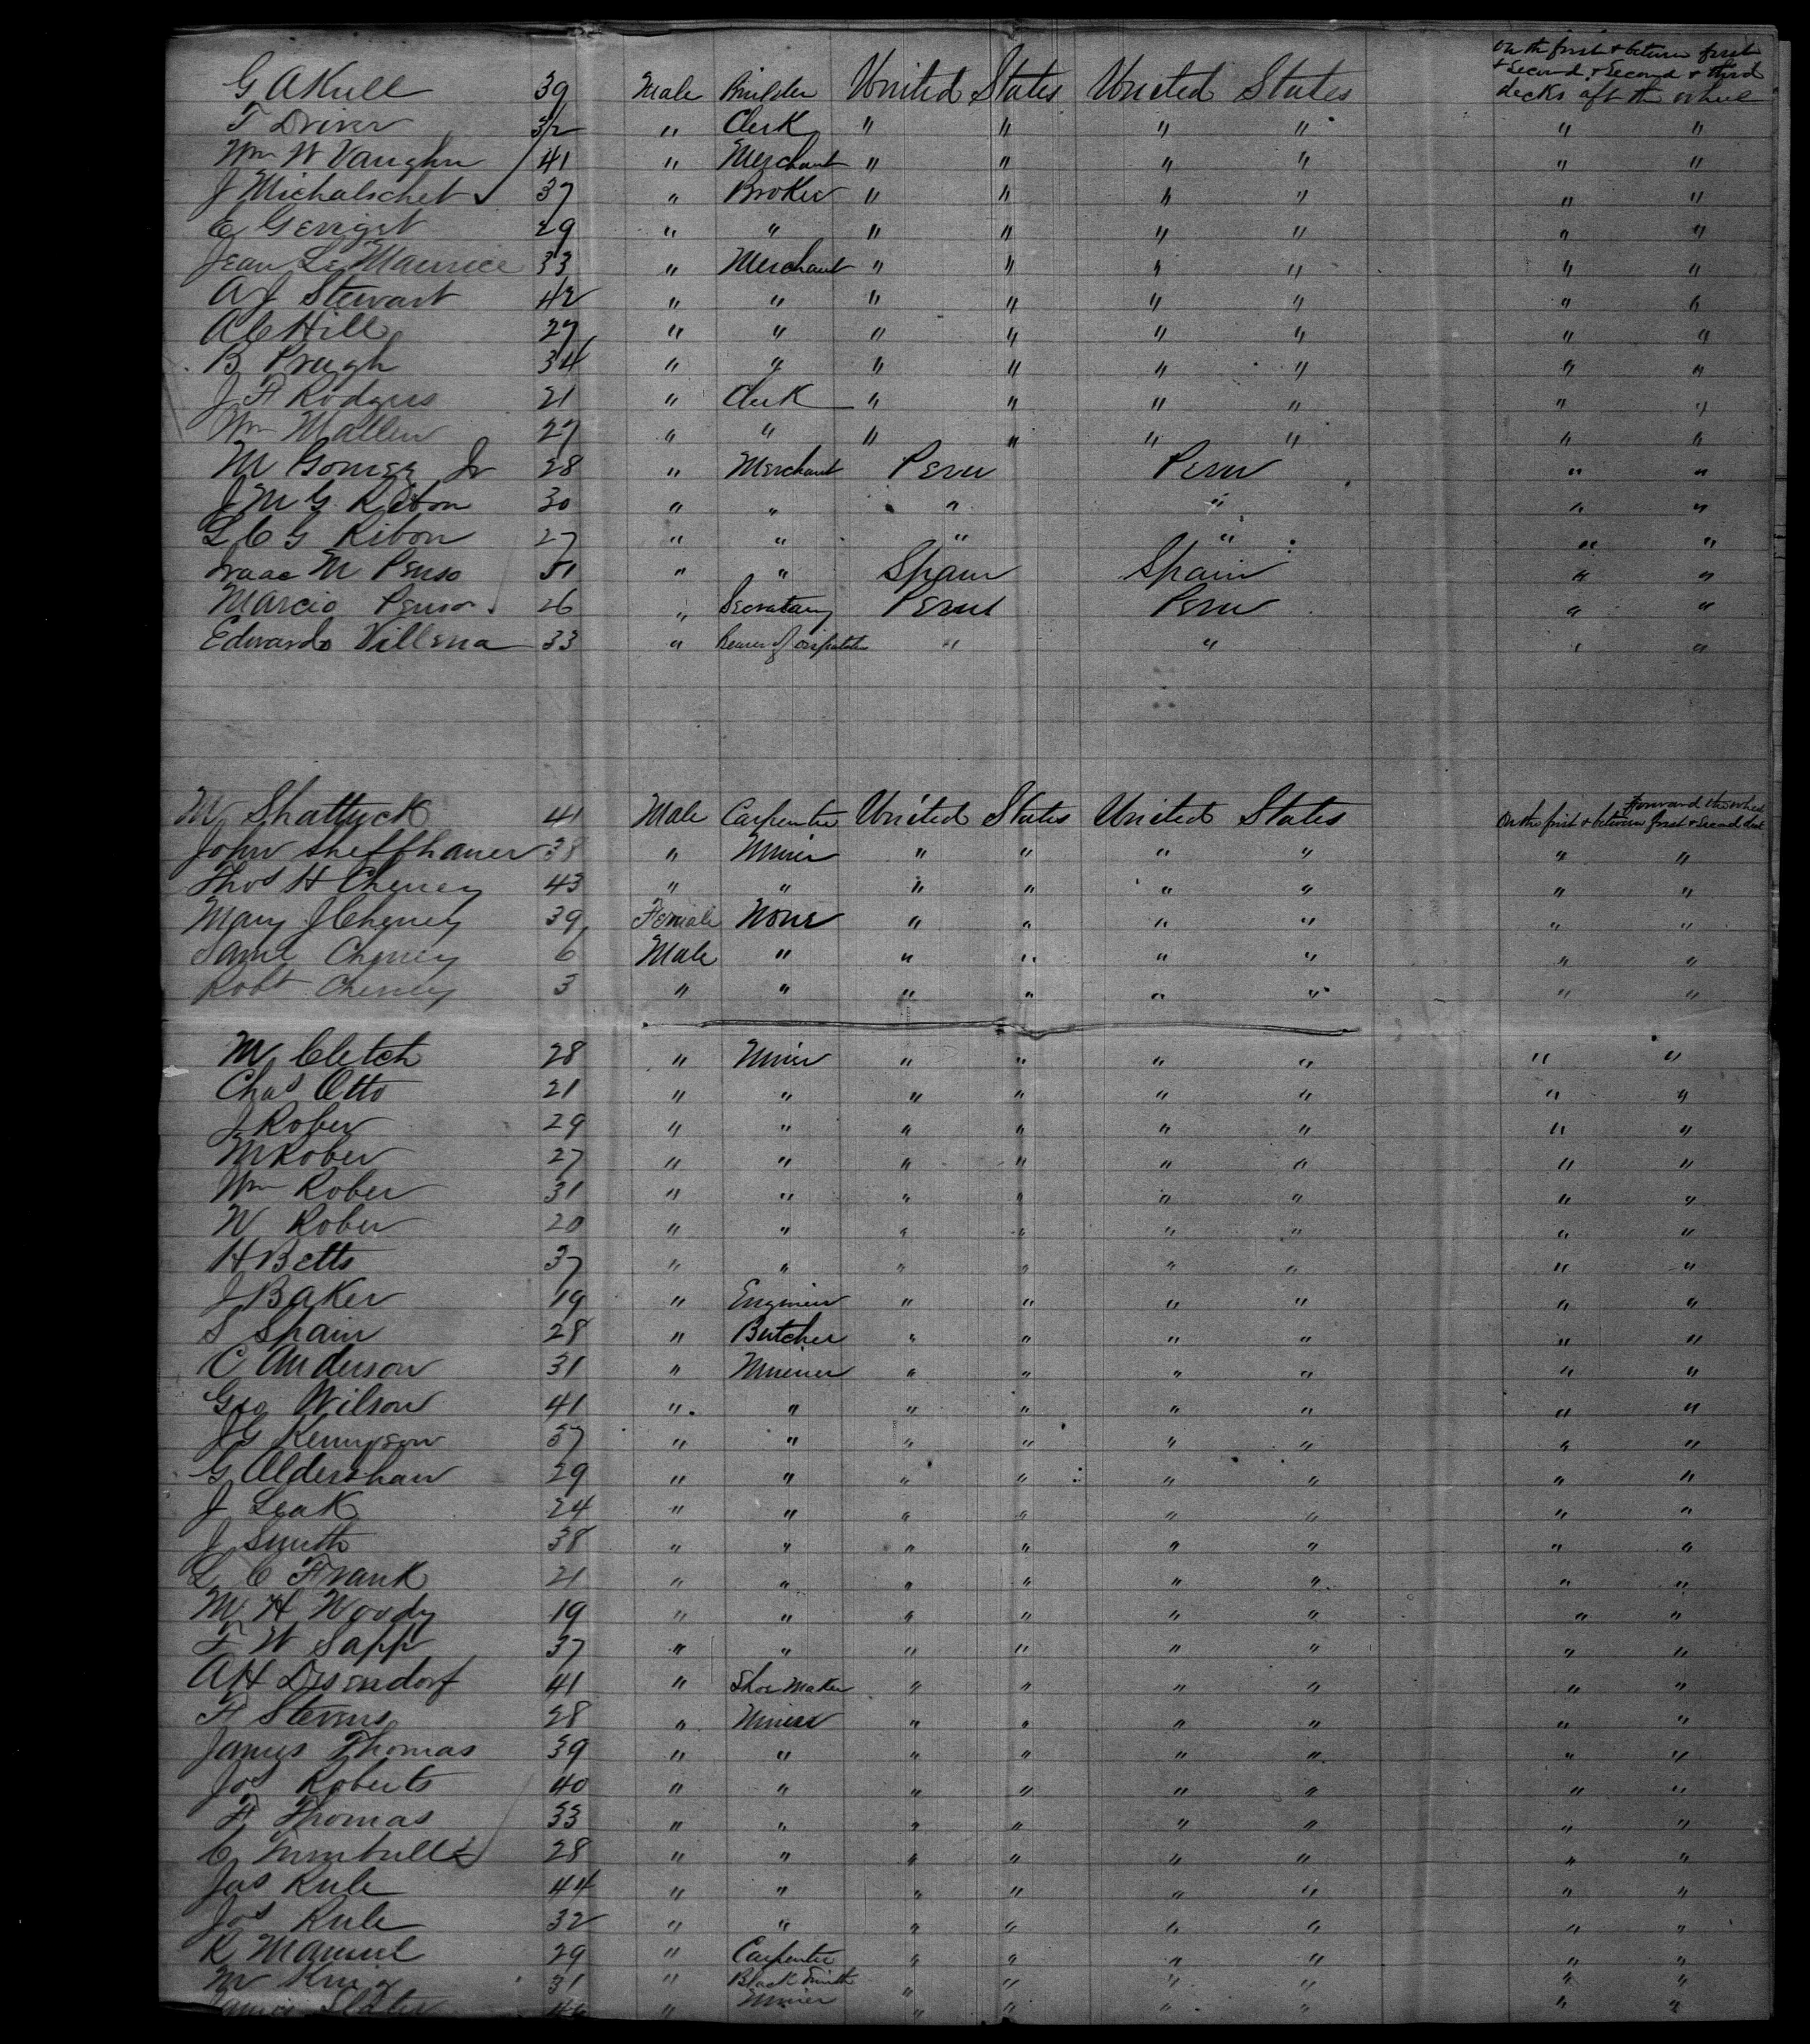 On the first & between first
& Second & Second & third
G A Kull 39 Male Builder United States United States decks aft the wheel
T Driver 32 " Clerk " " " " " "
Wm W Vaughn 41 " Merchant " " " " " "
J Michalschet 37 " Broker " " " " " "
29 " " " " " " " "
Jean Le Maurice 33 " Merchant " " " " " "
A J Stewart 42 " " " " " " " "
A C Hill 27 " " " " " " " "
B Prugh 34 " " " " " " " "
J F Rodgers 21 " Clerk " " " " " "
Wm Mallen 27 " " " " " " " "
M Gomez Jr 28 " Merchant Peru Peru " "
J M G Ribon 30 " " " " " "
L C G Ribon 27 " " " " " "
Isaac M Penso 51 " " Spain Spain " "
Marcio Penso 26 " Secratary Peru Peru " "
Edwardo Villena 33 " Bearer of dispatches " " " "
Forward the wheel
M Shattuck 41 Male Carpenter United States United States On the first & between first & Second deck
John Sheffhauer 38 " Minier " " " " " "
Thos H Cheney 43 " " " " " " " "
Mary J Cheney 39 Female None " " " " " "
Saml Cheney 6 Male " " " " " " "
Robt Cheney 3 " " " " " " " "
M Cletch 28 " Minier " " " " " "
Chas Otto 21 " " " " " " " "
J Rober 29 " " " " " " " "
M Rober 27 " " " " " " " "
Wm Rober 31 " " " " " " " "
W Rober 20 " " " " " " " "
H Betts 37 " " " " " " " "
J Baker 19 " Engineer " " " " " "
S Spain 28 " Butcher " " " " " "
C Anderson 31 " Minier " " " " " "
Geo Wilson 41 " " " " " " " "
J G Kennyson 37 " " " " " " " "
G Aldershaw 29 " " " " " " " "
J Leak 24 " " " " " " " "
J Smith 38 " " " " " " " "
L C Frank 21 " " " " " " " "
W H Woody 19 " " " " " " " "
T W Sapp 37 " " " " " " " "
A H Disendorf 41 " Shoe Maker " " " " " "
F Stevens 28 " Minier " " " " " "
James Thomas 39 " " " " " " " "
Jos Roberts 40 " " " " " " " "
F Thomas 33 " " " " " " " "
C Turnbull 28 " " " " " " " "
Jas Rule 44 " " " " " " " "
Jos Rule 32 " " " " " " " "
R Manuel 29 " Carpenter " " " " " "
M King 31 " Black Smith " " " " " "
James Slater " Minier " " " " " "